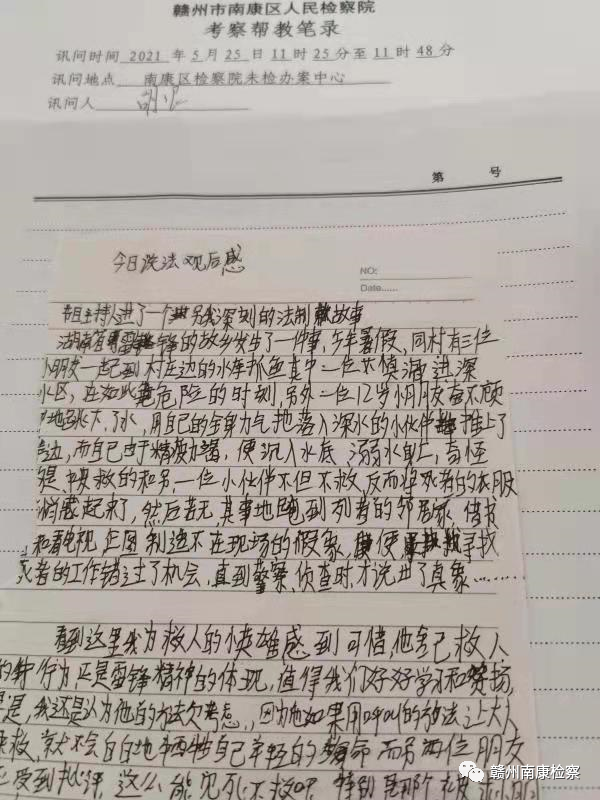 赣州市南康区人民检察院
考察帮教笔录
讯问时间 2021 年 5 月 25 日 11 时 25 分至 11 时 48 分
讯问地点 南康区检察院未检办案中心
讯问人
第 号
今日说法观后感
NO:
Date......
主持人进了一个 深刻的法制 故事
湖南省 雷锋的故乡发生了一件事,今年暑假、同村有三位
小朋友一起到村左边的水库抓鱼其中一位不慎滑进深
水区,在如此危险的时刻,另外一位12岁小朋友奋不顾
了水,用自己的全身力气把落入深水的小伙伴 推上了
边,而自己由于精疲力竭,便沉入水底、溺水身亡,奇怪
是、被救的和另一位小伙伴不但不救,反而将死者的衣服
藏起来了,然后若无其事地跑到死者的邻居家、借书
和看电视,企图制造不在现场的假象, 使 寻找
死者的工作错过了机会,直到警察、侦查时,才说出了真象......
看到这里我为救人的小英雄感到可惜,他舍己救人
的 行为正是雷锋精神的体现,值得我们好好学习和赞扬,
是,我还是认为他的方法欠考虑,因为他如果用呼叫的方法让大人
来救,就不会白白地牺牲自己年轻的 命而另两位朋友
受到批评,这么能见死不救呢,特别是那个被
赣州南康检察